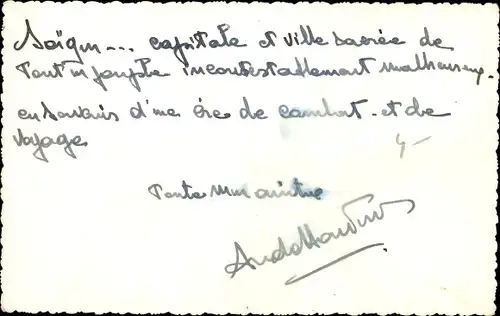 Saïgon --- capitale et ville sacrée de
tout un peuple incontestablement malheureux.
en souvenir d'une ère de combat et de
voyage
Toute mon amitié